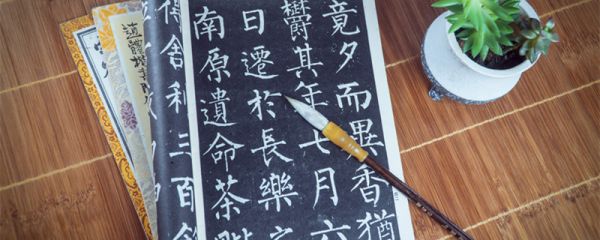 竟夕而異香猶
欝其年七月六
日遷於長樂之
南原遺命茶
得舍利三百